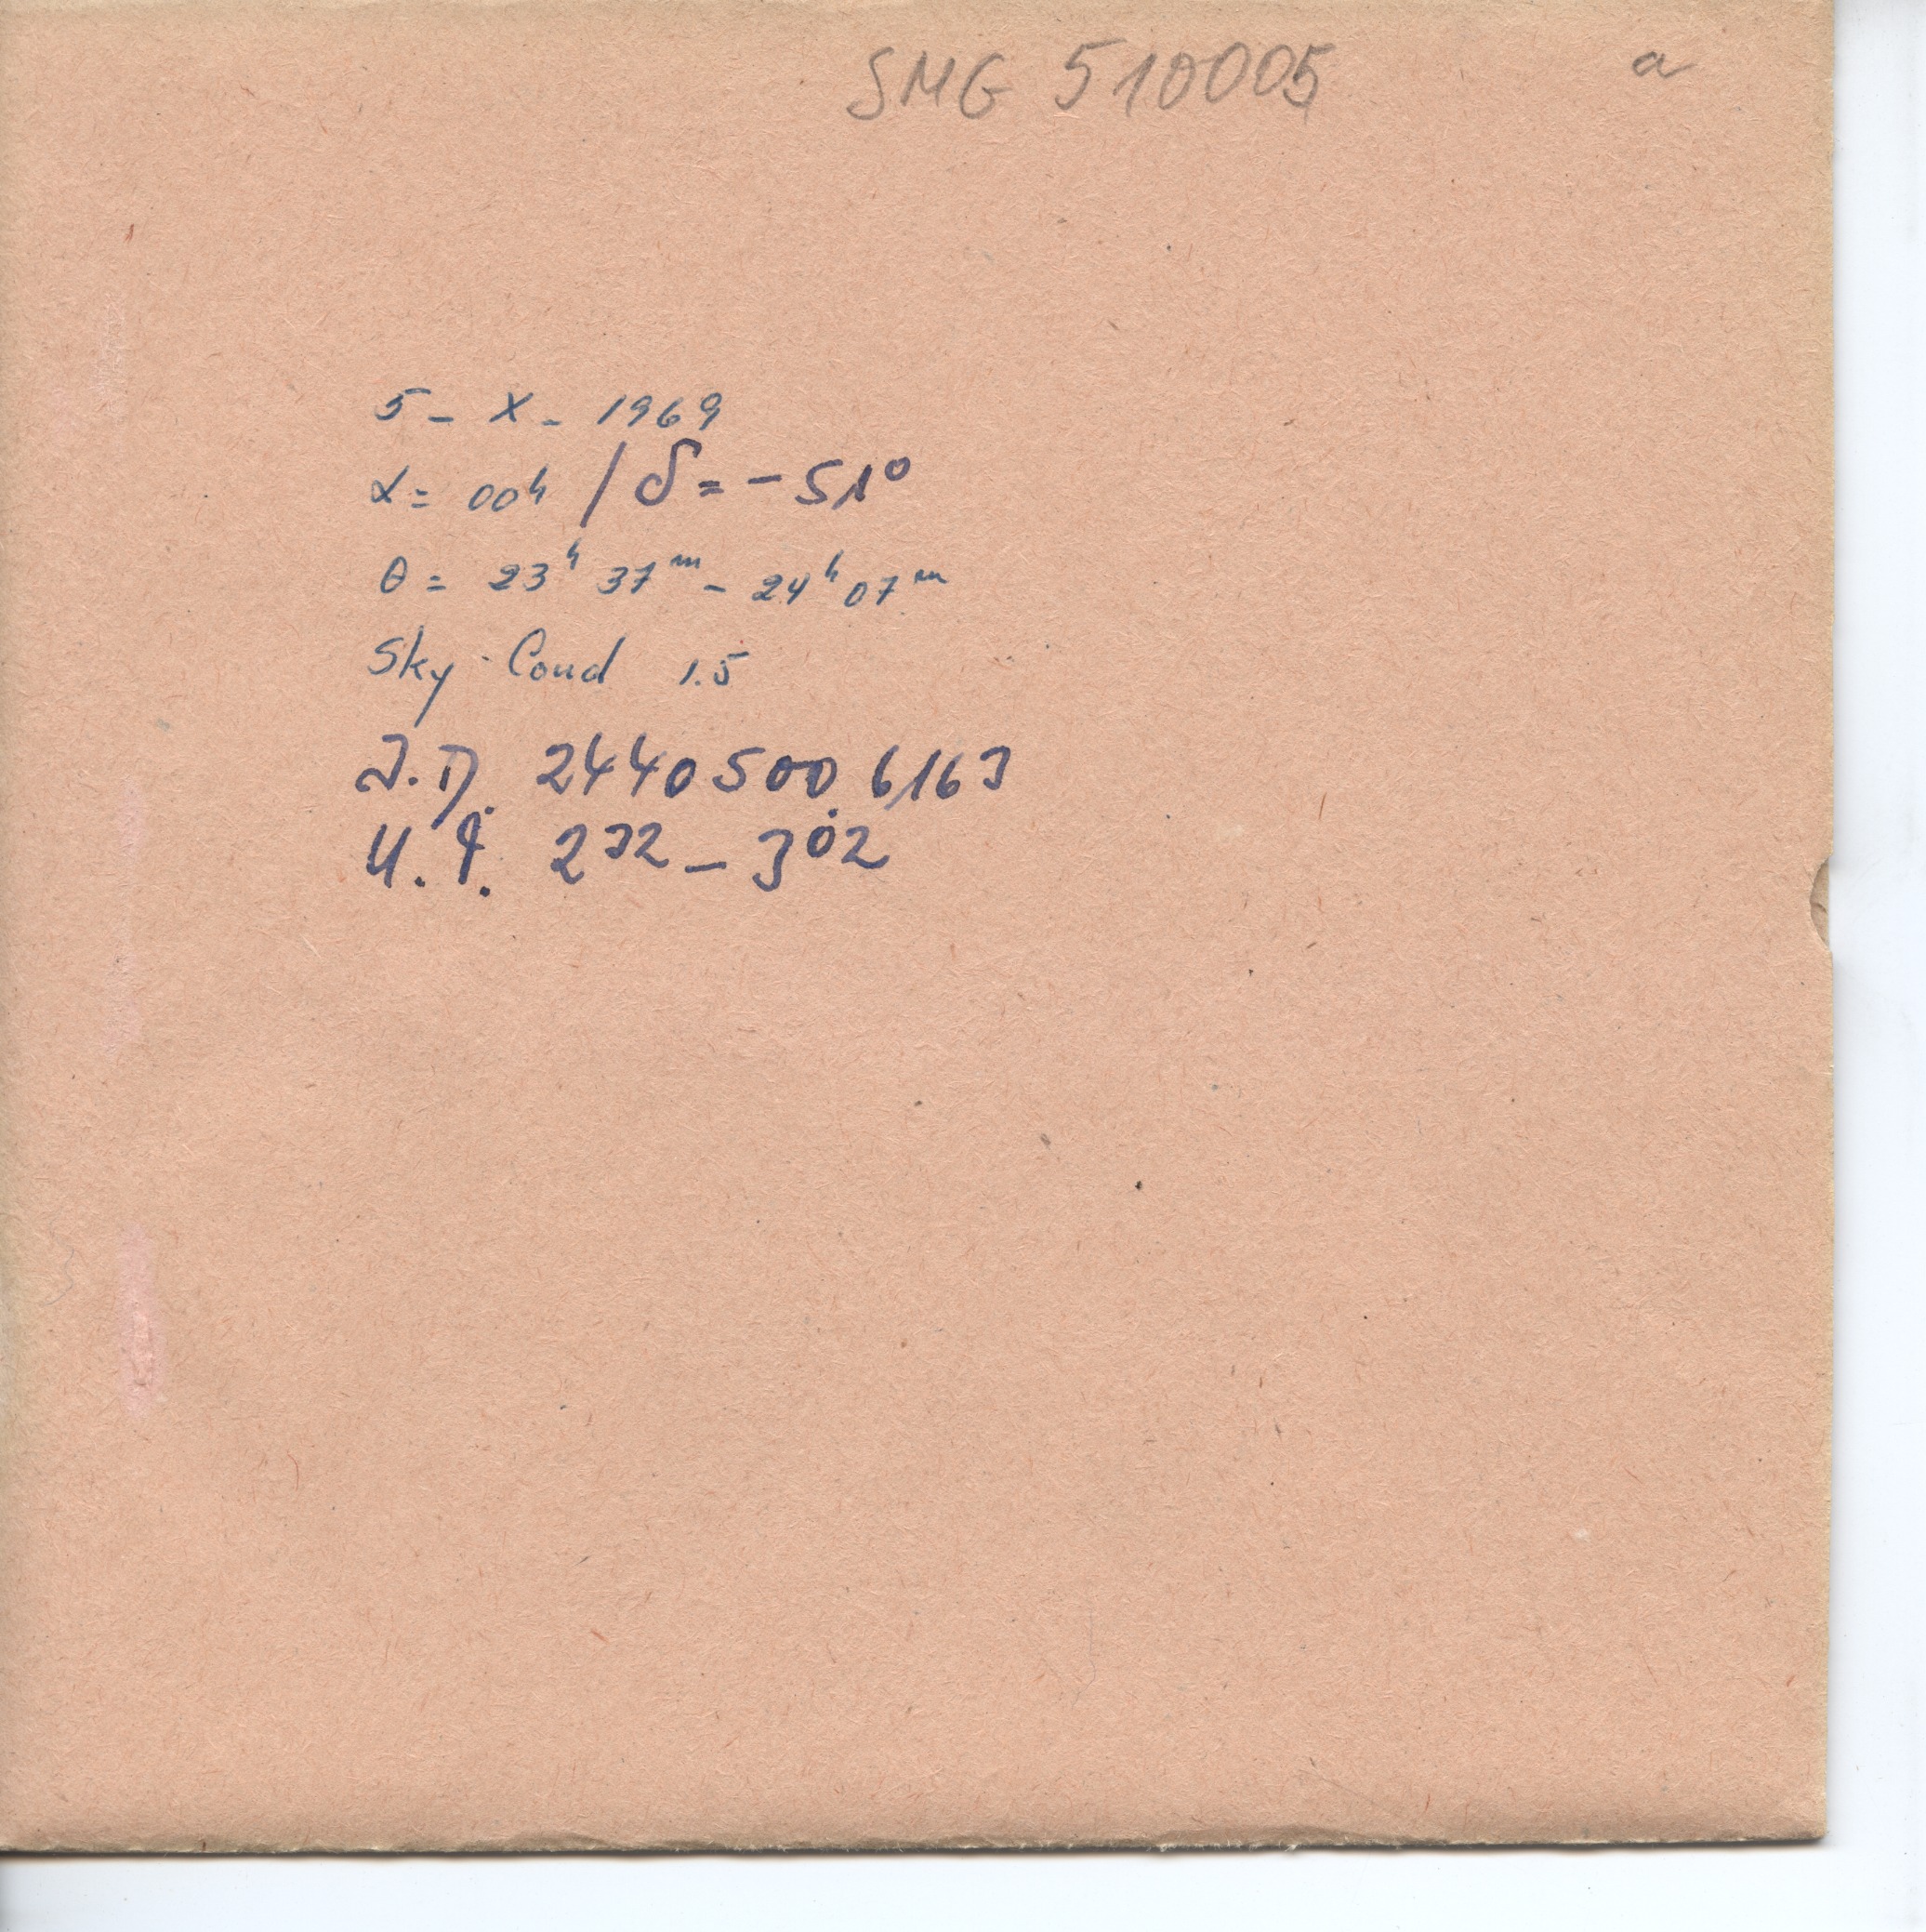 SMG 510005 a
5 - X - 1969
α = 00ʰ / δ = - 51°
θ = 23ʰ 37ᵐ - 24ʰ 07ᵐ
Sky-Cond 1.5
J.D. 2440500.6163
U.T. 2³² - 3⁰²